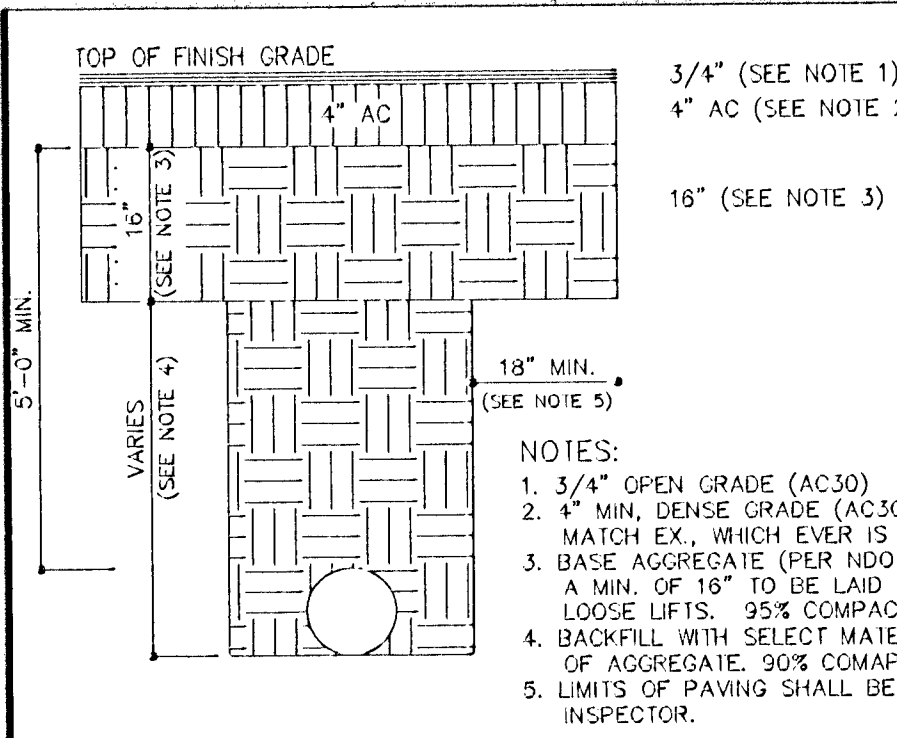 TOP OF FINISH GRADE
3/4" (SEE NOTE 1)
4" AC
4" AC (SEE NOTE 2
16"
(SEE NOTE 3)
16" (SEE NOTE 3)
5'-0" MIN.
VARIES
(SEE NOTE 4)
18" MIN.
(SEE NOTE 5)
NOTES:
1. 3/4" OPEN GRADE (AC30)
2. 4" MIN, DENSE GRADE (AC30
MATCH EX., WHICH EVER IS
3. BASE AGGREGATE (PER NDO
A MIN. OF 16" TO BE LAID
LOOSE LIFTS. 95% COMPAC
4. BACKFILL WITH SELECT MATE
OF AGGREGATE. 90% COMAP
5. LIMITS OF PAVING SHALL BE
INSPECTOR.